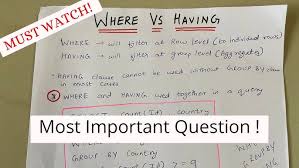 MUST WATCH!
WHERE VS HAVING
WHERE → will filter at Row level (to individual rows)
HAVING → will filter at group level (Aggregates)
• HAVING clause cannot be used without GROUP BY clause
in most cases
③ WHERE and HAVING used together in a query
Most Important Question !
SELECT count(Id), country
WHERE
GROUP BY Country